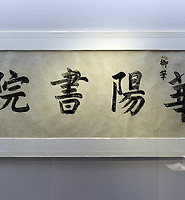 華陽書院
御筆